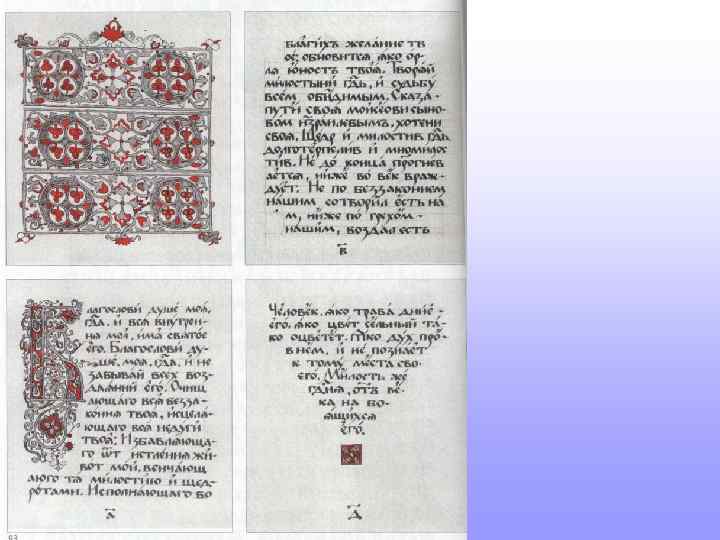 бл҃ги́хъ жела́ние тв
ое́: обнови́тсѧ ꙗ҆́ко ор-
лѧ ю҆́ность твоѧ́. Творѧ́й
ми́лостыни гдⷭ҇ь, и҆ судьбу̀
всѣ́м оби́димым. Сказа̀-
пути̑ своѧ̑ моисе́ови сыно-
во́м и҆зра́илевымъ, хотѣни
своѧ̑. Ще́др и҆ ми́лостив гдⷭ҇ь
долготерпели́в и҆ многомилос
ти́в. Не до конца̀ прогнев
а́етсѧ, ниже́ во вѣ́к враж-
ду́ет: Не по беззако́нием
на́шим сотвори́л е҆́сть на
м, ниже́ по грехо́м -
на́шим, возда́л есть
в
лагослови̑ душе́ моѧ̀,
гдⷭ҇а, и҆ всѧ̑ вну́трен-
нѧ моѧ̀, и҆́мѧ свѧто́е
е҆гѡ̀. Благослови̑ ду-
ше, моѧ̀, гдⷭ҇а, и҆ не
забыва́й всех воз-
даѧ́ний е҆го̀. Очищ
а́ющаго всѧ̑ безза-
ко́ниѧ твоѧ̑, исцелѧ-
ющаго всѧ̑ неду́ги
твоѧ̑: И҆збавлѧ́юща-
го ѿ истле́ниѧ жи-
во́т мо́й, венча́ющ
аюго тѧ ми́лостию и҆ щед-
ро́тами. И҆сполнѧ́ющаго бо
Человѣ́к, ꙗ҆́ко трава̀ дни́е -
е҆го̀, ꙗ҆́ко цве́т се́льный та́-
ко оцвете́т. Ꙗ҆́ко ду́х про́-
в не́м, и҆ не позна́ет
к тому̀ ме́ста сво-
его. Ми́лость же
гдⷭ҇нѧ, ѿ ве́-
ка на бо-
ѧ́щихсѧ
е҆го̀.
д